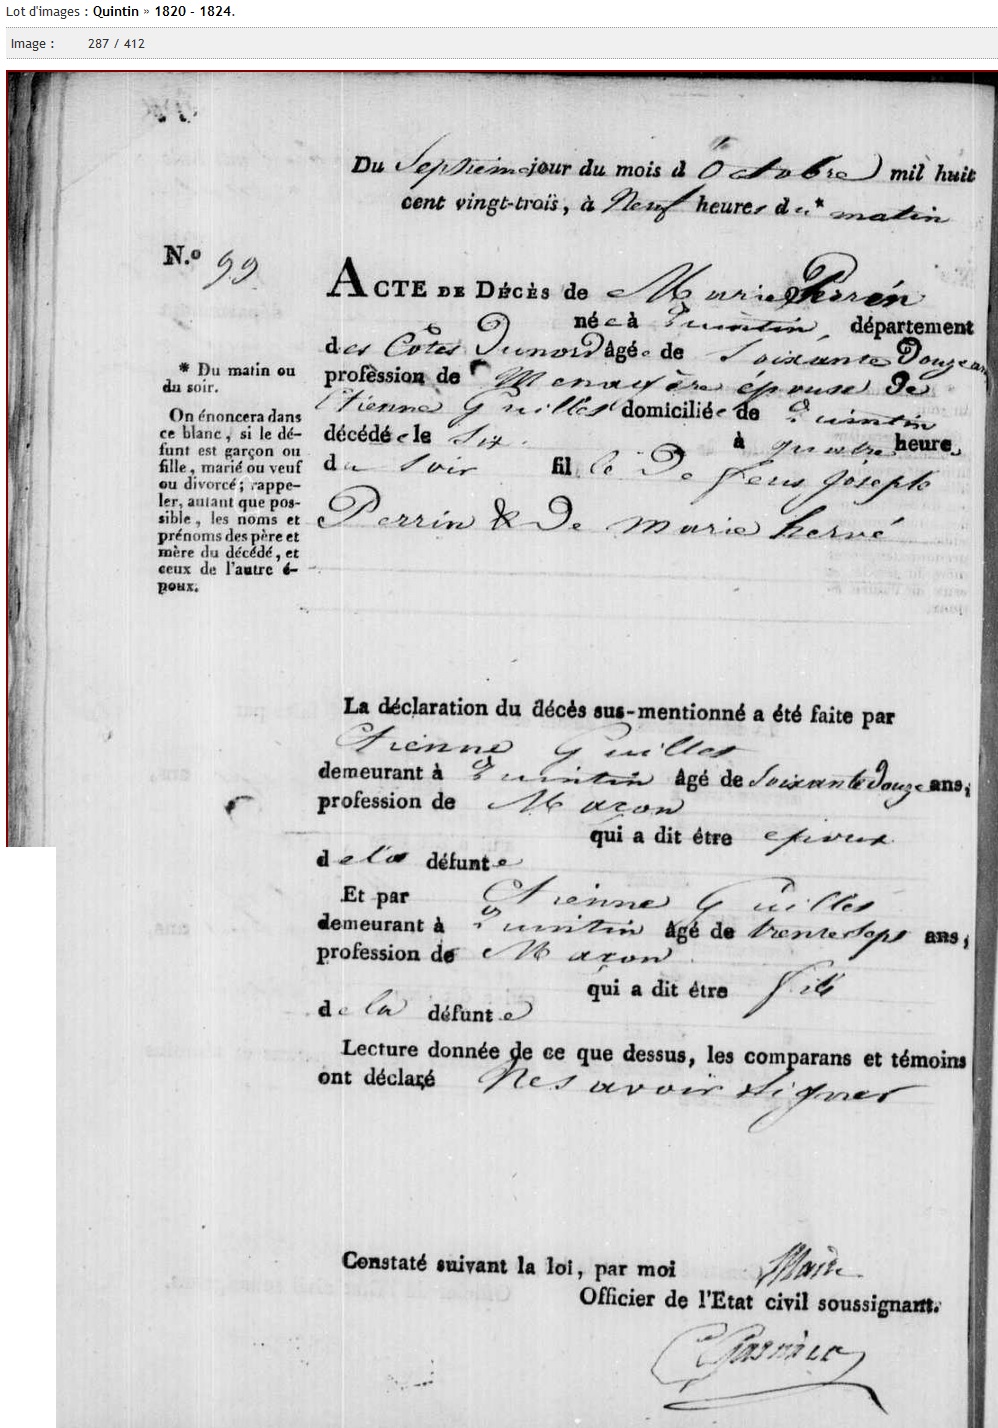 Lot d'images : Quintin » 1820 - 1824.
Image : 287 / 412
Du Septieme jour du mois d Octobre mil huit
cent vingt-trois, à Neuf heures du * matin
N.º 99
ACTE DE DÉCÈS de Marie Perrin
née à quintin, département
des Côtes Dunord âgée de Soixante Douze ans
profession de Menagère épouse De
Etienne Guilles domiciliée de quintin
décédée le Six. à quatre heures
du Soir fille De feus joseph
Perrin & De marie hervé
* Du matin ou
du soir.
On énoncera dans
ce blanc, si le dé-
funt est garçon ou
fille, marié ou veuf
ou divorcé; rappe-
ler, autant que pos-
sible, les noms et
prénoms des père et
mère du décédé, et
ceux de l'autre é-
poux.
La déclaration du décès sus-mentionné a été faite par
Etienne Guilles
demeurant à quintin âgé de Soixante douze ans;
profession de Maçon
qui a dit être epoux
de la défunte
Et par Etienne Guilles
demeurant à quintin âgé de trente sept ans;
profession de Maçon
qui a dit être fils
de la défunte
Lecture donnée de ce que dessus, les comparans et témoins
ont déclaré Ne savoir signer
Constaté suivant la loi, par moi Maire
Officier de l'Etat civil soussignant.